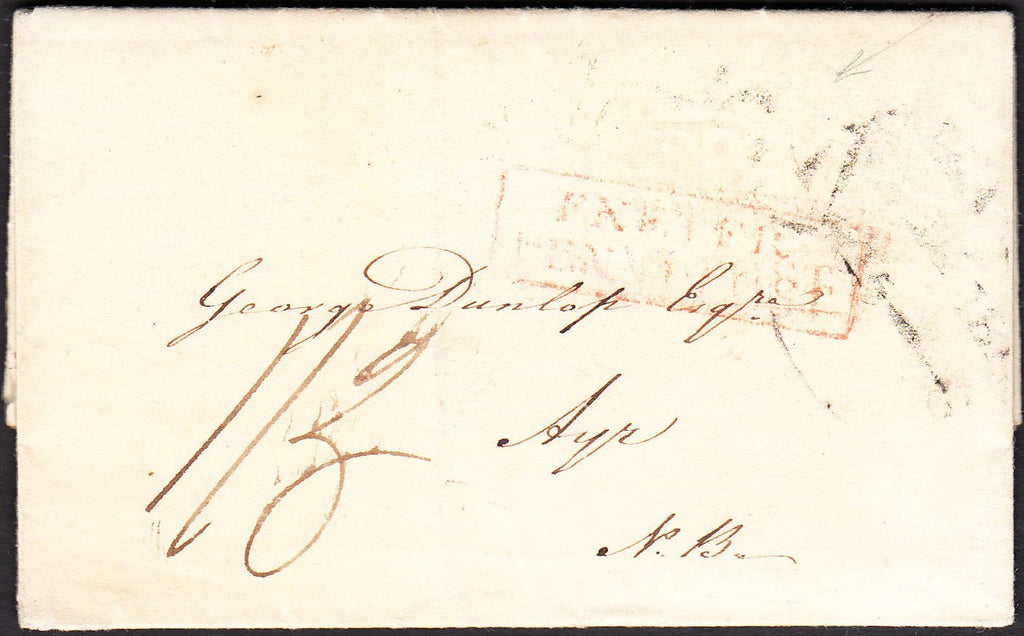 EXETER
PENNY POST
George Dunlop Esqre
Ayr
N.B.